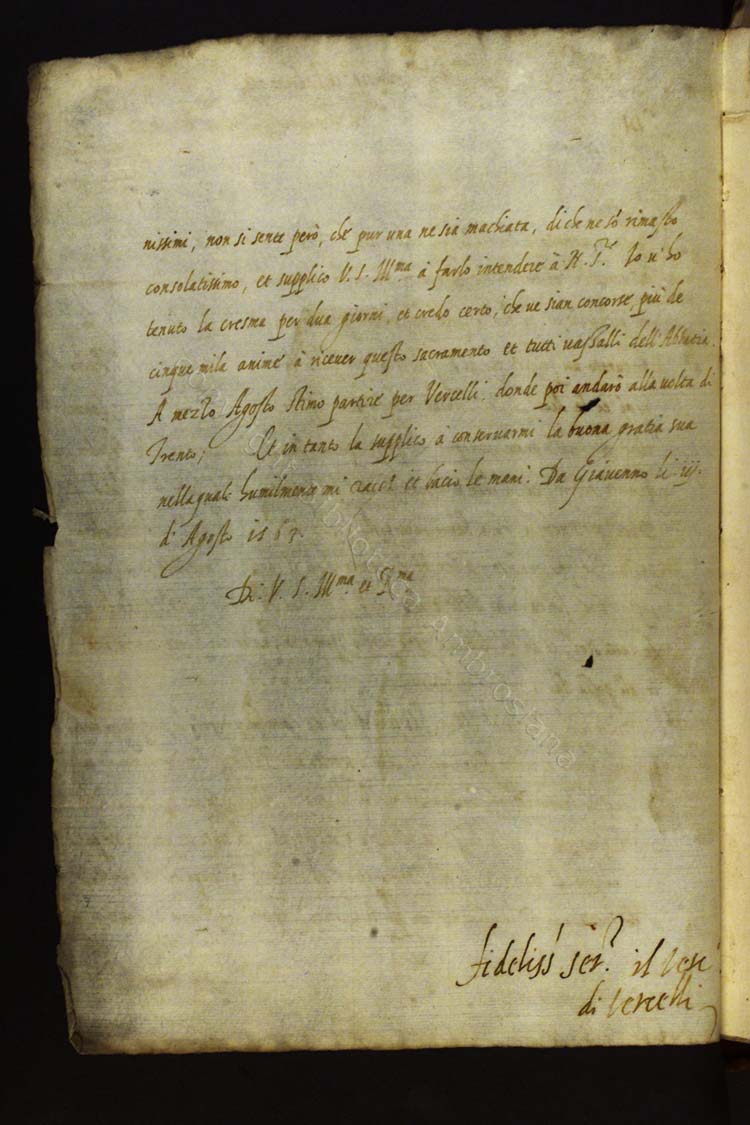 nissimi, non si sente però, che pur una ne sia machiata, di che ne sò rimasto
consolatissimo, et supplico V. S. Ill.ma à farlo intendere à N. S.re Io u'ho
tenuto la cresma per dua giorni, et credo certo, che ue sian concorse più de
cinque mila anime à riceuer questo sacramento et tutti uassalli dell'Abbatia.
A mezzo Agosto stimo partire per Vercelli donde poi andarò alla uolta di
Trento; Et in tanto la supplico à conseruarmi la buona gratia sua
nella qual humilmente mi racc.o et bacio le mani. Da Giauenno li iij.
d'Agosto 1563.
Di. V. S. Ill.ma et R.ma
fideliss' ser.r il Vesc'
di Vercelli
Biblioteca Ambrosiana